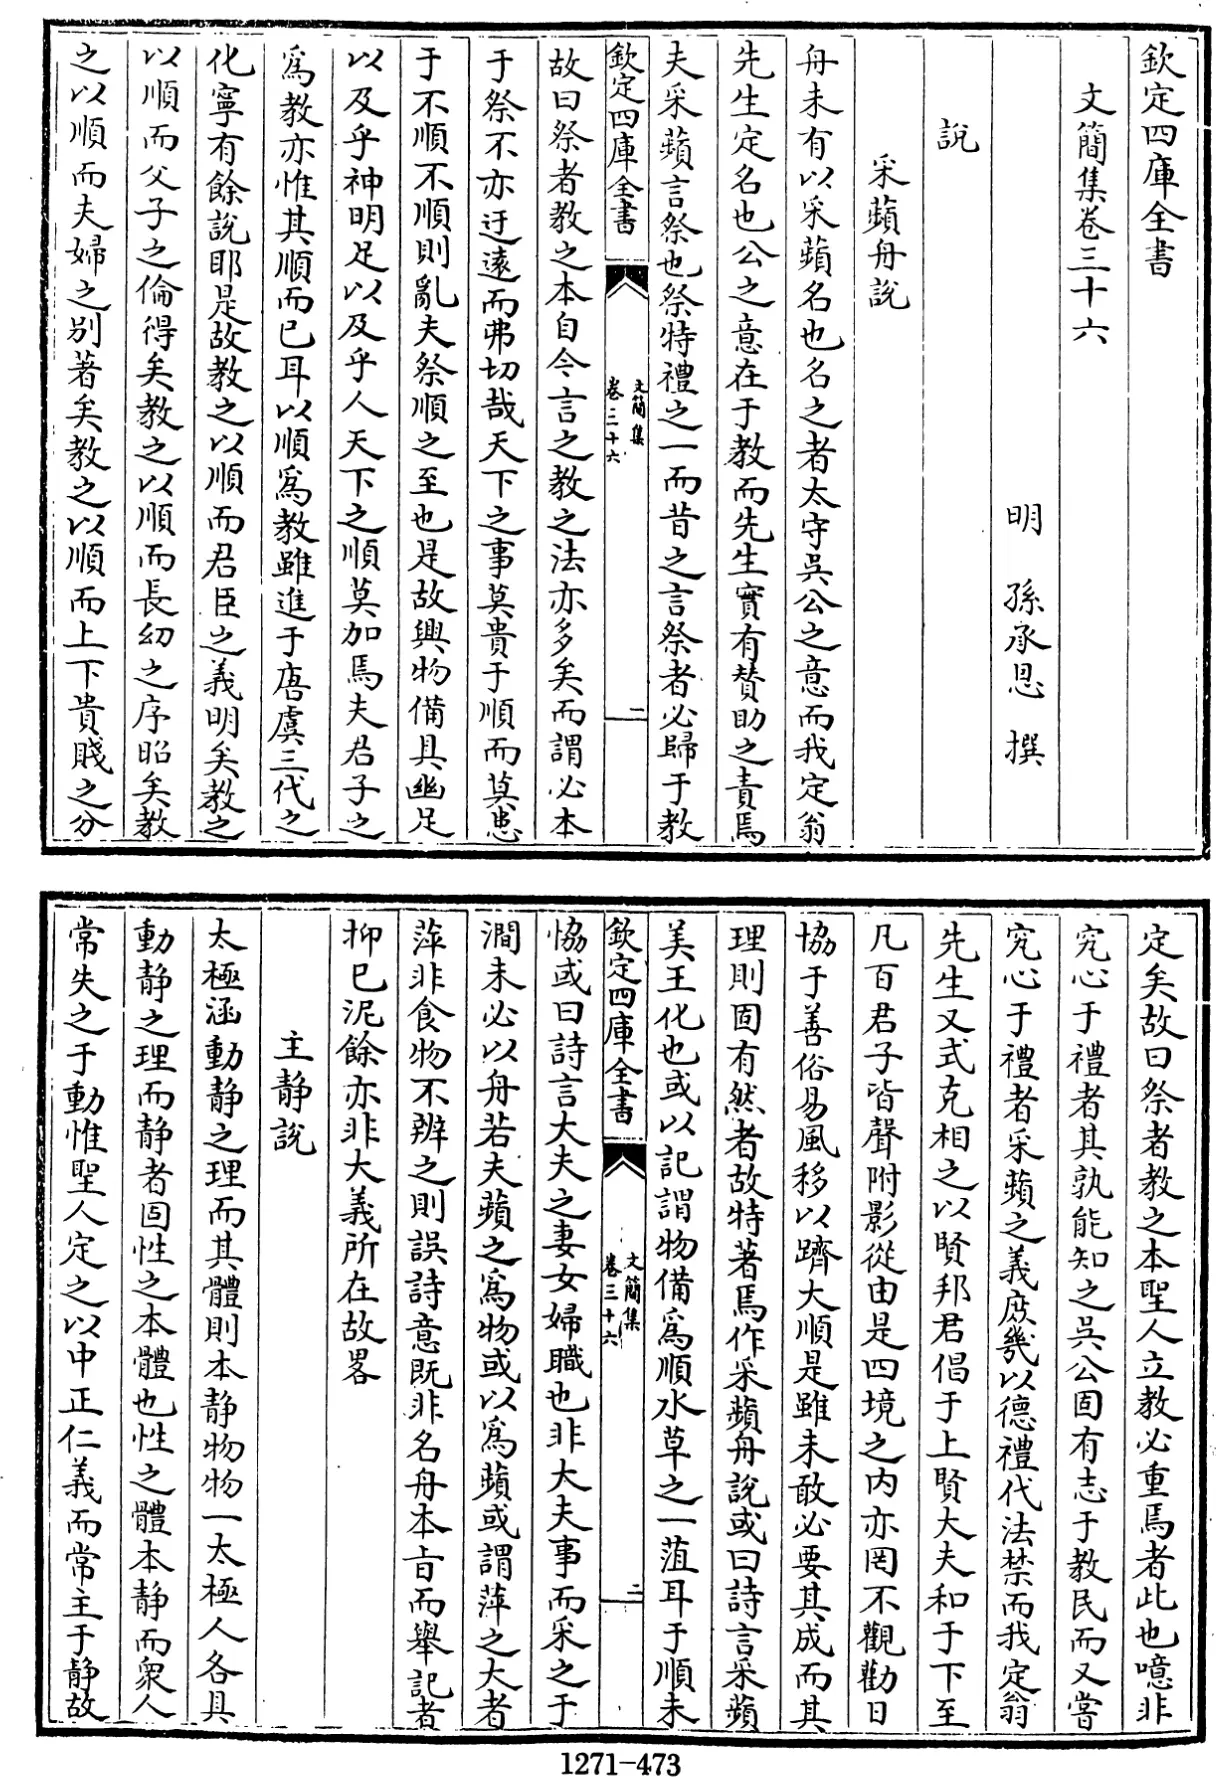 欽定四庫全書
文簡集卷三十六
明 孫承恩 撰
說
采蘋舟說
舟未有以采蘋名也名之者太守吳公之意而我定翁
先生定名也公之意在于教而先生實有賛助之責焉
夫采蘋言祭也祭特禮之一而昔之言祭者必歸于教
欽定四庫全書
文簡集
卷三十六
一
故曰祭者教之本自今言之教之法亦多矣而謂必本
于祭不亦迂遠而弗切哉天下之事莫貴于順而莫患
于不順不順則亂夫祭順之至也是故興物備具幽足
以及乎神明足以及乎人天下之順莫加焉夫君子之
為教亦惟其順而已耳以順為教雖進于唐虞三代之
化寧有餘說耶是故教之以順而君臣之義明矣教之
以順而父子之倫得矣教之以順而長幼之序昭矣教
之以順而夫婦之别著矣教之以順而上下貴賤之分
定矣故曰祭者教之本聖人立教必重焉者此也噫非
究心于禮者其孰能知之吳公固有志于教民而又嘗
究心于禮者采蘋之義庶幾以德禮代法禁而我定翁
先生又式克相之以賢邦君倡于上賢大夫和于下至
凡百君子皆聲附影從由是四境之内亦罔不觀勸日
協于善俗易風移以躋大順是雖未敢必要其成而其
理則固有然者故特著焉作采蘋舟說或曰詩言采蘋
美王化也或以記謂物備為順水草之一菹耳于順未
欽定四庫全書
文簡集
卷三十六
二
恊或曰詩言大夫之妻女婦職也非大夫事而采之于
澗未必以舟若夫蘋之為物或以為蘋或謂萍之大者
萍非食物不辨之則誤詩意既非名舟本旨而舉記者
抑已泥餘亦非大義所在故畧
主静說
太極涵動静之理而其體則本静物物一太極人各具
動静之理而静者固性之本體也性之體本静而衆人
常失之于動惟聖人定之以中正仁義而常主于静故
1271-473